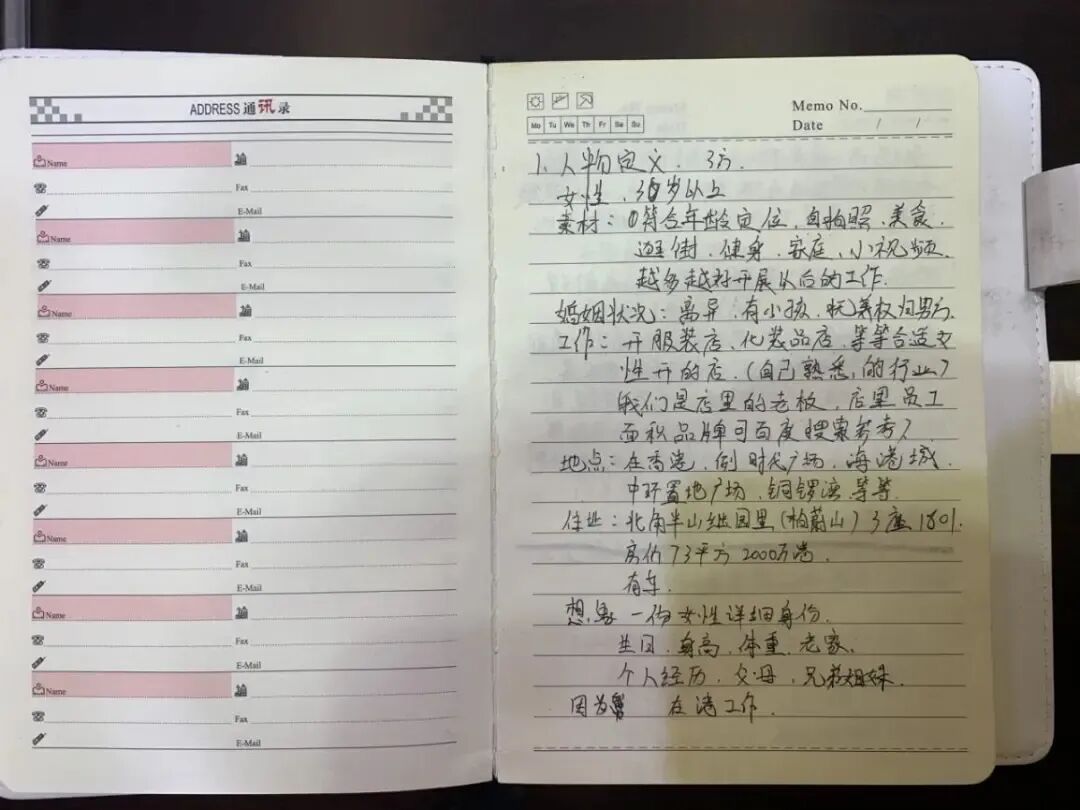 ADDRESS 通讯录
Name
Fax
E-Mail
Name
Fax
E-Mail
Name
Fax
E-Mail
Name
Fax
E-Mail
Name
Fax
E-Mail
Name
Fax
E-Mail
Name
Fax
E-Mail
Name
Fax
E-Mail
Memo No.
Mo Tu We Th Fr Sa Su
Date / /
1、人物定义. 3方.
女性,30岁以上
素材:①符合年龄定位,自拍照、美食.
逛街、健身、家庭、小视频.
越多越好开展以后的工作.
婚姻状况:离异,有小孩,抚养权归男方.
工作:开服装店、化装品店,等等合适女
性开的店.(自己熟悉的行业)
我们是店里的老板,店里员工
面积品牌可百度搜索参考)
地点:在香港,例时代广场,海港城.
中环置地广场,铜锣湾等等
住址:北角半山继园里(柏蔚山)3座1801.
房价73平方2000万港.
有车.
想象一份女性详细身份.
生日,身高,体重,老家.
个人经历,父母,兄弟姐妹.
因为 在港工作.